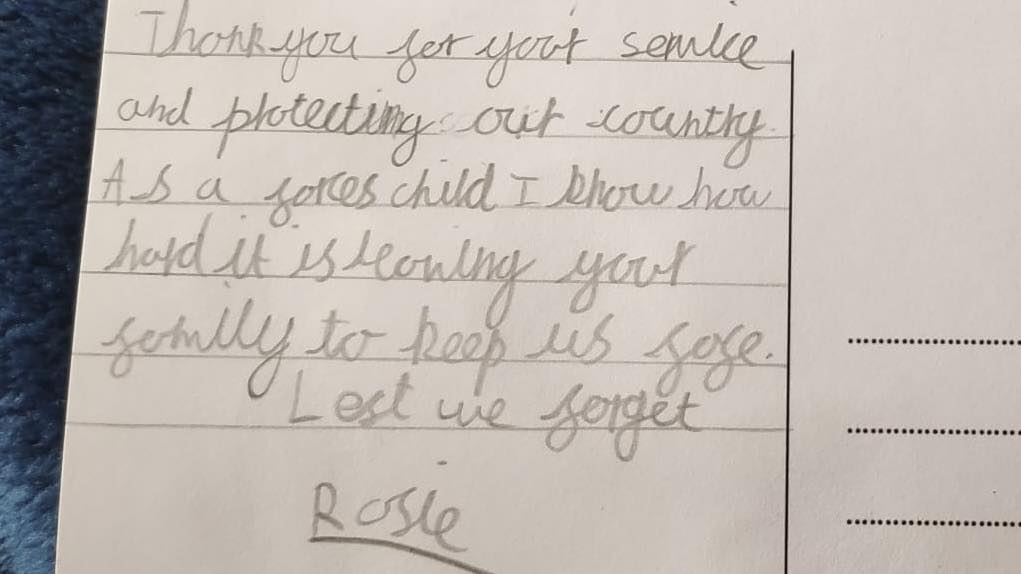 Thank you for your service
and protecting our country.
As a forces child I know how
hard it is leaving your
family to keep us safe.
Lest we forget
Rosie